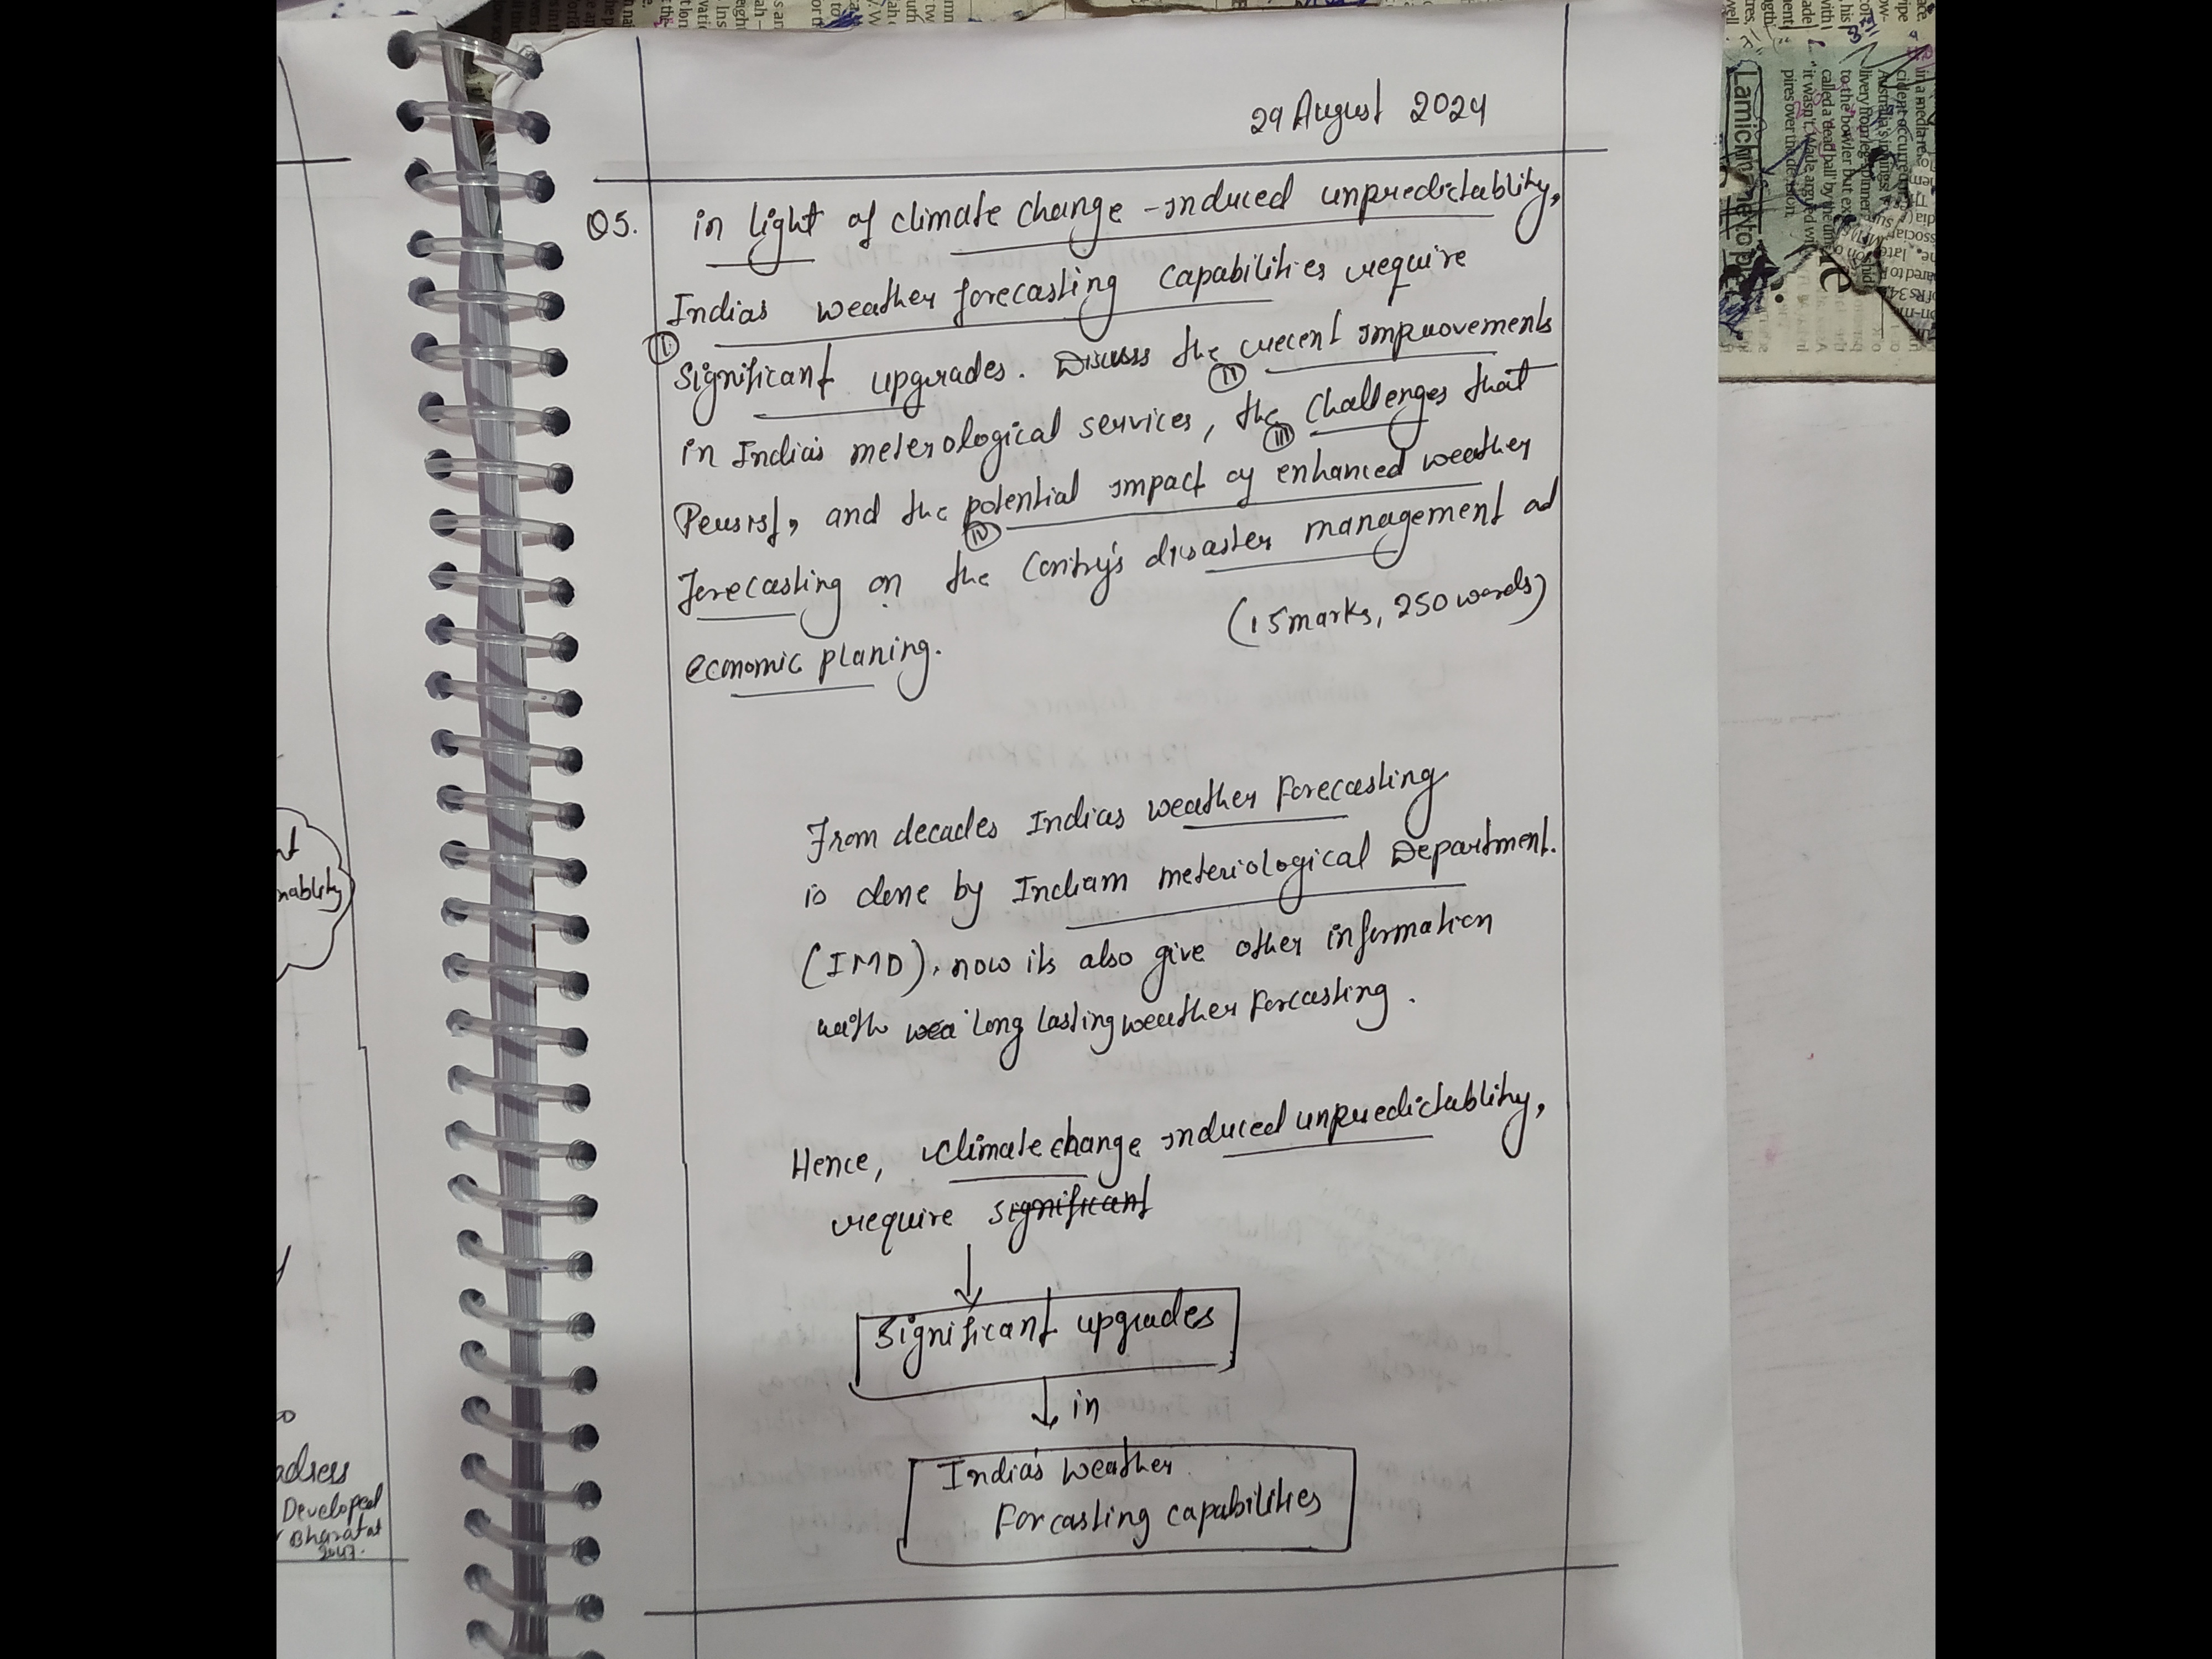 29 August 2024
Q5. in light of climate change - induced unpredictablity,
Indias weather forecasting capabilities require
(I) Significant upgrades. Discuss the recent improvements
(II)
in India's meterological services, the challenges that
(III)
Persist, and the potential impact of enhanced weather
(IV)
forecasting on the contry's disaster management ad
economic planing. (15 marks, 250 words)
From decades Indias weather Forecasting
is done by Indiam meteriological Department.
(IMD). now its also give other information
with wea long lasting weather Forcasting.
Hence, climate change induced unpredictablity,
require significant
Significant upgrades
in
India's weather
Forcasting capabilities
nablity
adress
Developed
Bharatat
2047.
Lamichhane to pl